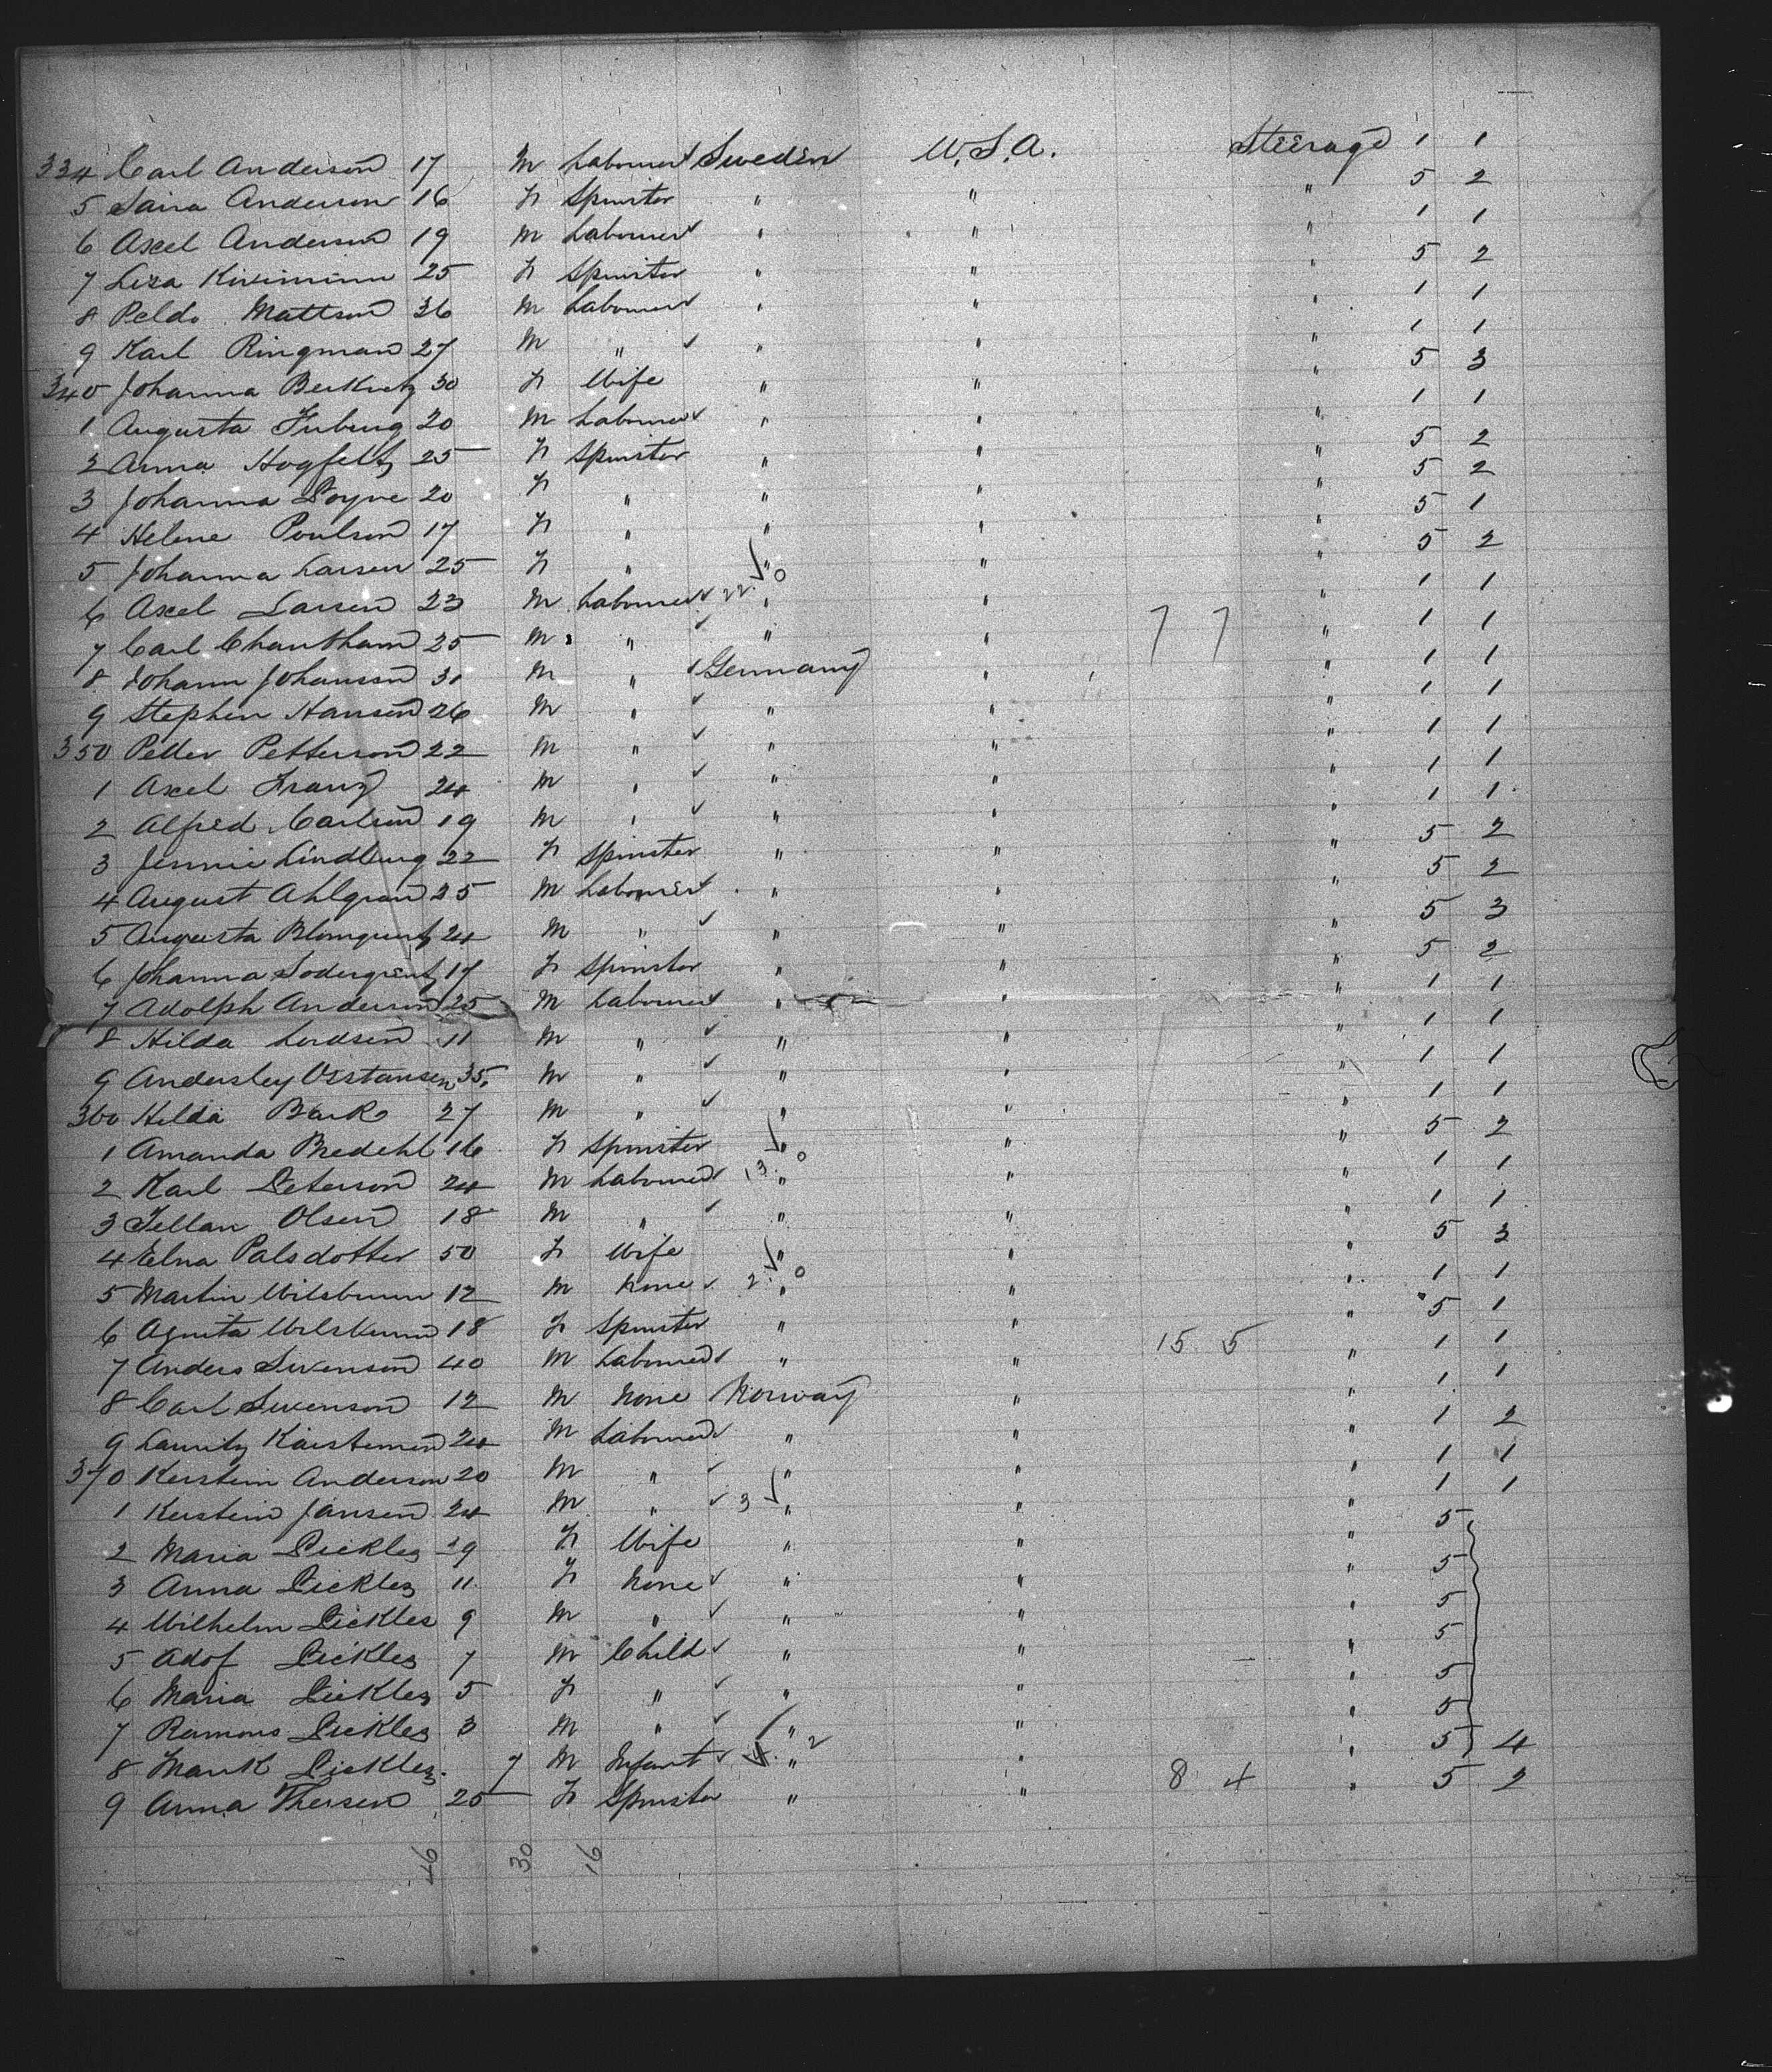 334 Carl Anderson 17 M Labourer Sweden U.S.A. Steerage 1 1
5 Saira Anderson 16 F Spinster " " " 5 2
6 Axel Anderson 19 M Labourer " " " 1 1
7 Liza 25 F Spinster " " " 5 2
8 Peldo Mattson 36 M Labourer " " " 1 1
9 Karl Ringman 27 M " " " " 1 1
340 Johanna 30 F Wife " " " 5 3
1 Augusta 20 M Labourer " " " 1 1
2 Anna Hogfelt 25 F Spinster " " " 5 2
3 Johanna 20 F " " " " 5 2
4 Helene Poulson 17 F " " " " 5 1
5 Johanna Larsen 25 F " " " " 5 2
6 Axel Larsen 23 M Labourer 22 0 " " " 1 1
7 Carl Chantham 25 M " " " 7 7 " 1 1
8 Johann Johanson 31 M " Germany " " 1 1
9 Stephen Hansen 26 M " " " " 1 1
350 Petter Petterson 22 M " " " " 1 1
1 Axel Franz 24 M " " " " 1 1
2 Alfred Carlson 19 M " " " " 1 1
3 Jennie Lindberg 22 F Spinster " " " 5 2
4 August Ahlgran 25 M Labourer " " " 5 2
5 Augusta Blomquist 24 M " " " " 5 3
6 Johanna 17 F Spinster " " " 5 2
7 Adolph Anderson 25 M Labourer " " " 1 1
8 Hilda Lordsen 11 M " " " " 1 1
9 Andersley Osstansen 35 M " " " " 1 1
360 Hilda Bark 27 M " " " " 1 1
1 Amanda Bredehl 16 F Spinster " " " 5 2
2 Karl Peterson 24 M Labourer 13 0 " " " 1 1
3 Tellan Olsen 18 M " " " " 1 1
4 Elna Palsdotter 50 F Wife " " " 5 3
5 Martin 12 M None 2 0 " " " 1 1
6 Agnita 18 F Spinster " " " 5 1
7 Anders Swenson 40 M Labourer " " 15 5 " 1 1
8 Carl Swenson 12 M None Norway " " 1 1
9 Lauritz 24 M Labourer " " " 1 2
370 Kerstein Anderson 20 M " " " " 1 1
1 Kerstein Jansen 24 M " 3 " " " 1 1
2 Maria Dickles 29 F Wife " " " 5
3 Anna Dickles 11 F None " " " 5
4 Wilhelm Dickles 9 M " " " " 5
5 Adof Dickles 7 M Child " " " 5
6 Maria Dickles 5 F " " " " 5
7 Ramons Dickles 3 M " " " " 5
8 Mark Dickles 7 M Infant 4 2 " " " 5 4
9 Anna Thersen 20 F Spinster " " 8 4 " 5 2
46 30 16